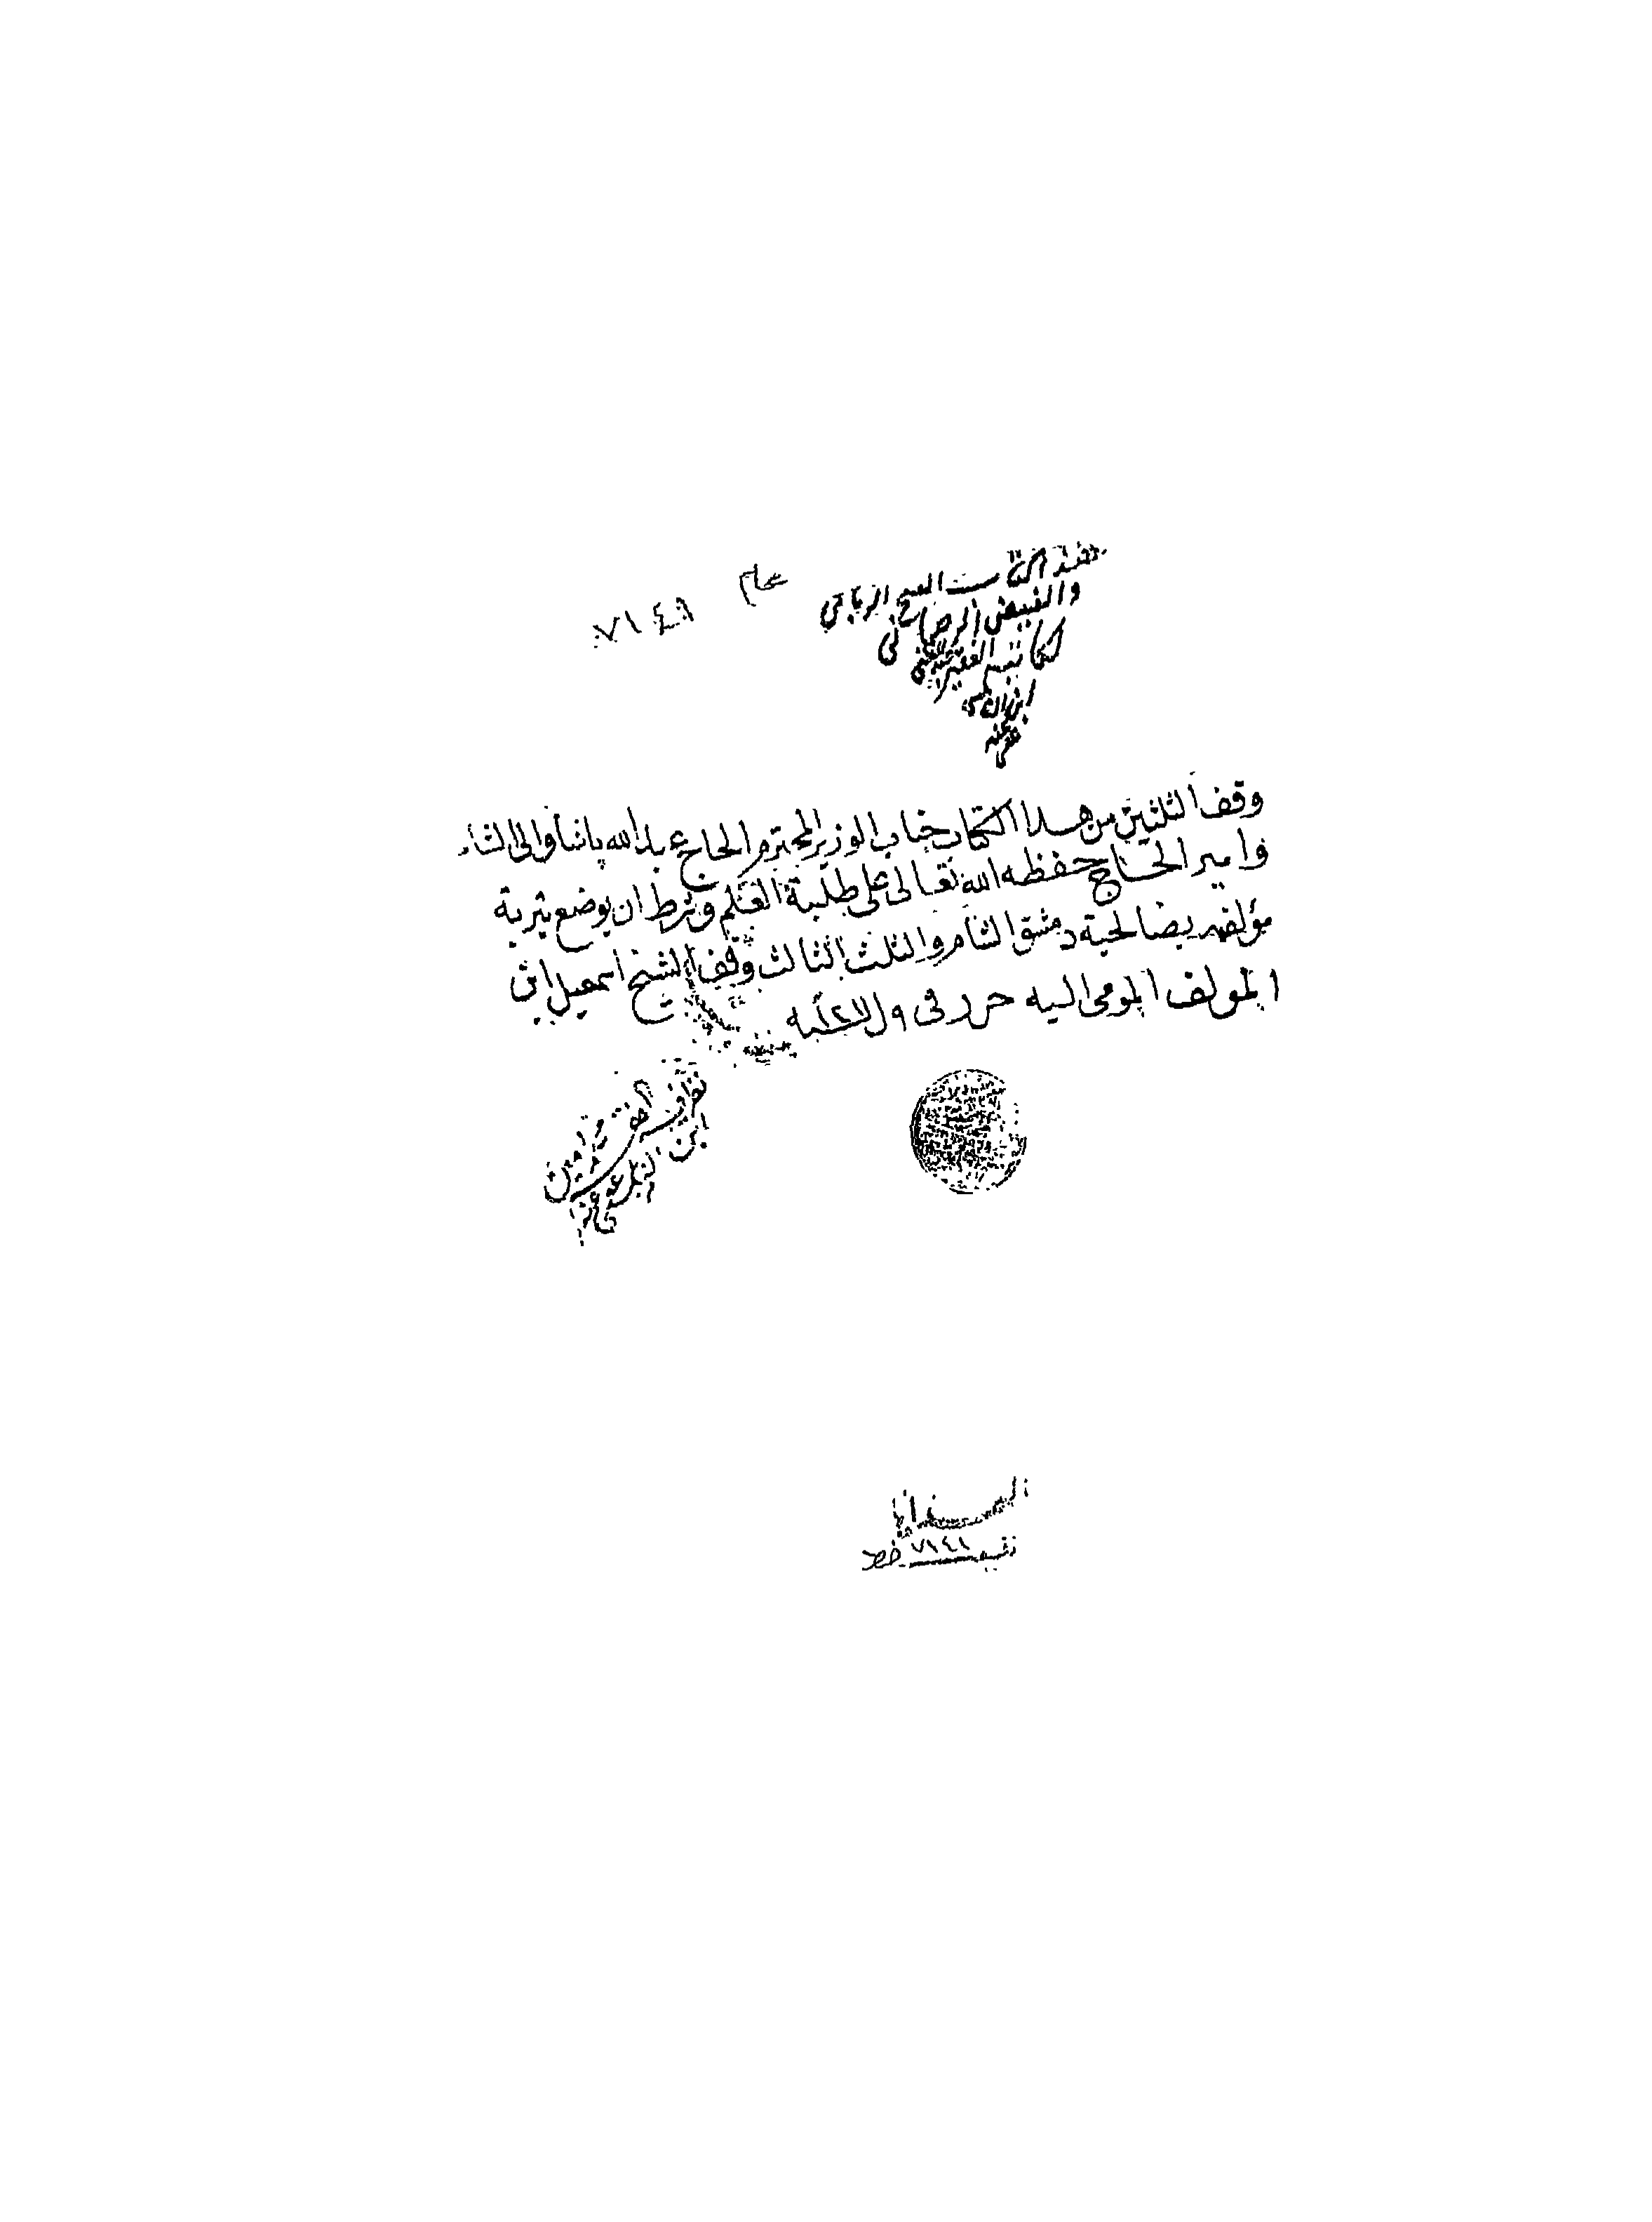 هذا كتاب الفتح الرباني
والفيض الرحماني
لكاتبه الفقير عبد الغني
ابن النابلسي
عفي عنه
عام
٧١٤١
وقف الثلثين من هذا الكتاب جناب الوزير المحترم الحاج عبد الله باشا والي الشام
وامير الحاج حفظه الله تعالى على طلبة العلم وشرط ان يوضع بتربة
مؤلفه بصالحية دمشق الشام والثلث الثالث وقف الشيخ اسمعيل ابن
المولف المومى اليه حرر في
نظر فيه
ابن
٧١٤١